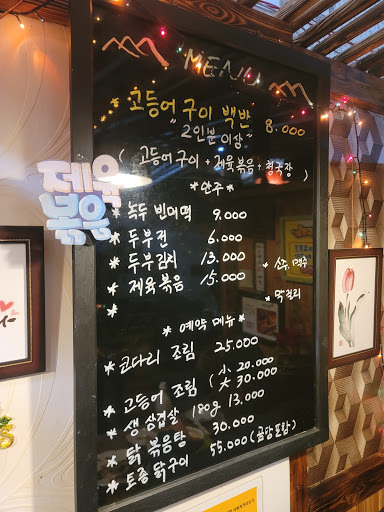 MENU
* 고등어 구이 백반 8.000
"2인분 이상"
( 고등어구이 + 제육볶음 + 청국장 )
제육
볶음
* 안주 *
* 녹두 빈대떡 9.000
* 두부전 6.000
* 두부김치 13.000
* 제육볶음 15.000
*
* 소주, 맥주
* 막걸리
* 예약 메뉴 *
* 코다리 조림 25.000
* 고등어 조림 (小 20.000
大 30.000
* 생 삼겹살 180g 13.000
* 닭 볶음탕 30.000
* 토종 닭구이 55.000 (곰탕포함)